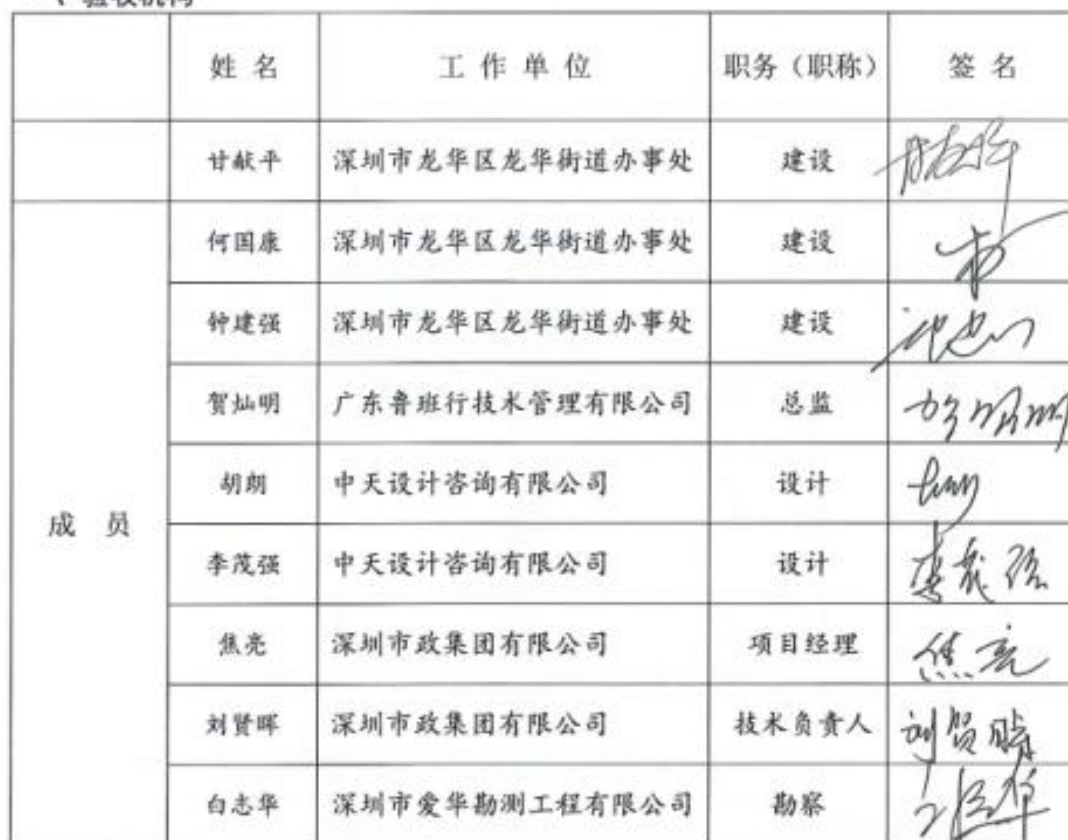 验收机构
姓名 工作单位 职务（职称） 签名
甘献平 深圳市龙华区龙华街道办事处 建设
何国康 深圳市龙华区龙华街道办事处 建设
钟建强 深圳市龙华区龙华街道办事处 建设
贺灿明 广东鲁班行技术管理有限公司 总监
胡朗 中天设计咨询有限公司 设计
成员
李茂强 中天设计咨询有限公司 设计 李茂强
焦亮 深圳市政集团有限公司 项目经理 焦亮
刘贤晖 深圳市政集团有限公司 技术负责人
白志华 深圳市爱华勘测工程有限公司 勘察